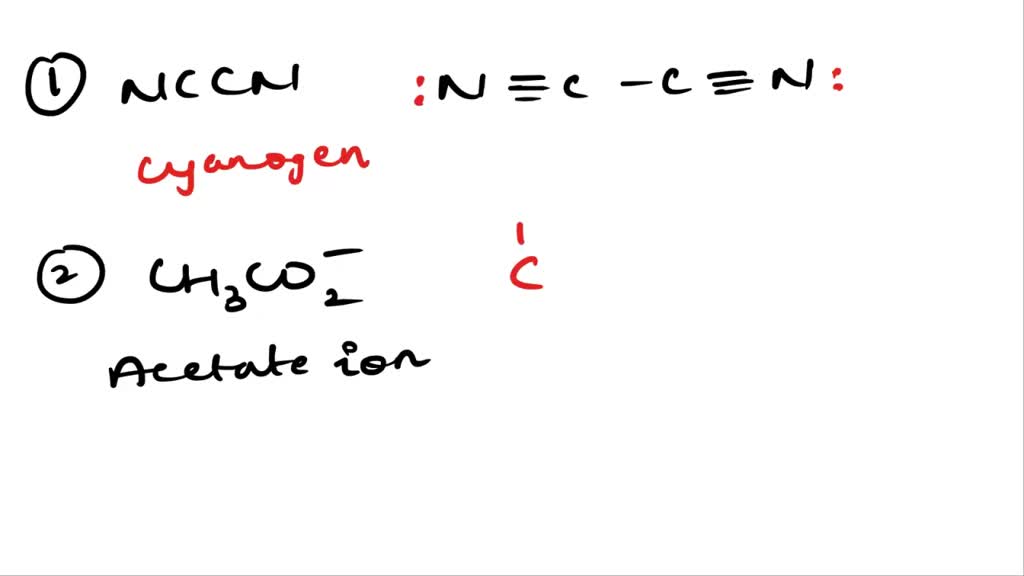 ① NCCN :N≡C–C≡N:
cyanogen
② CH₃CO₂⁻ C
Acetate ion